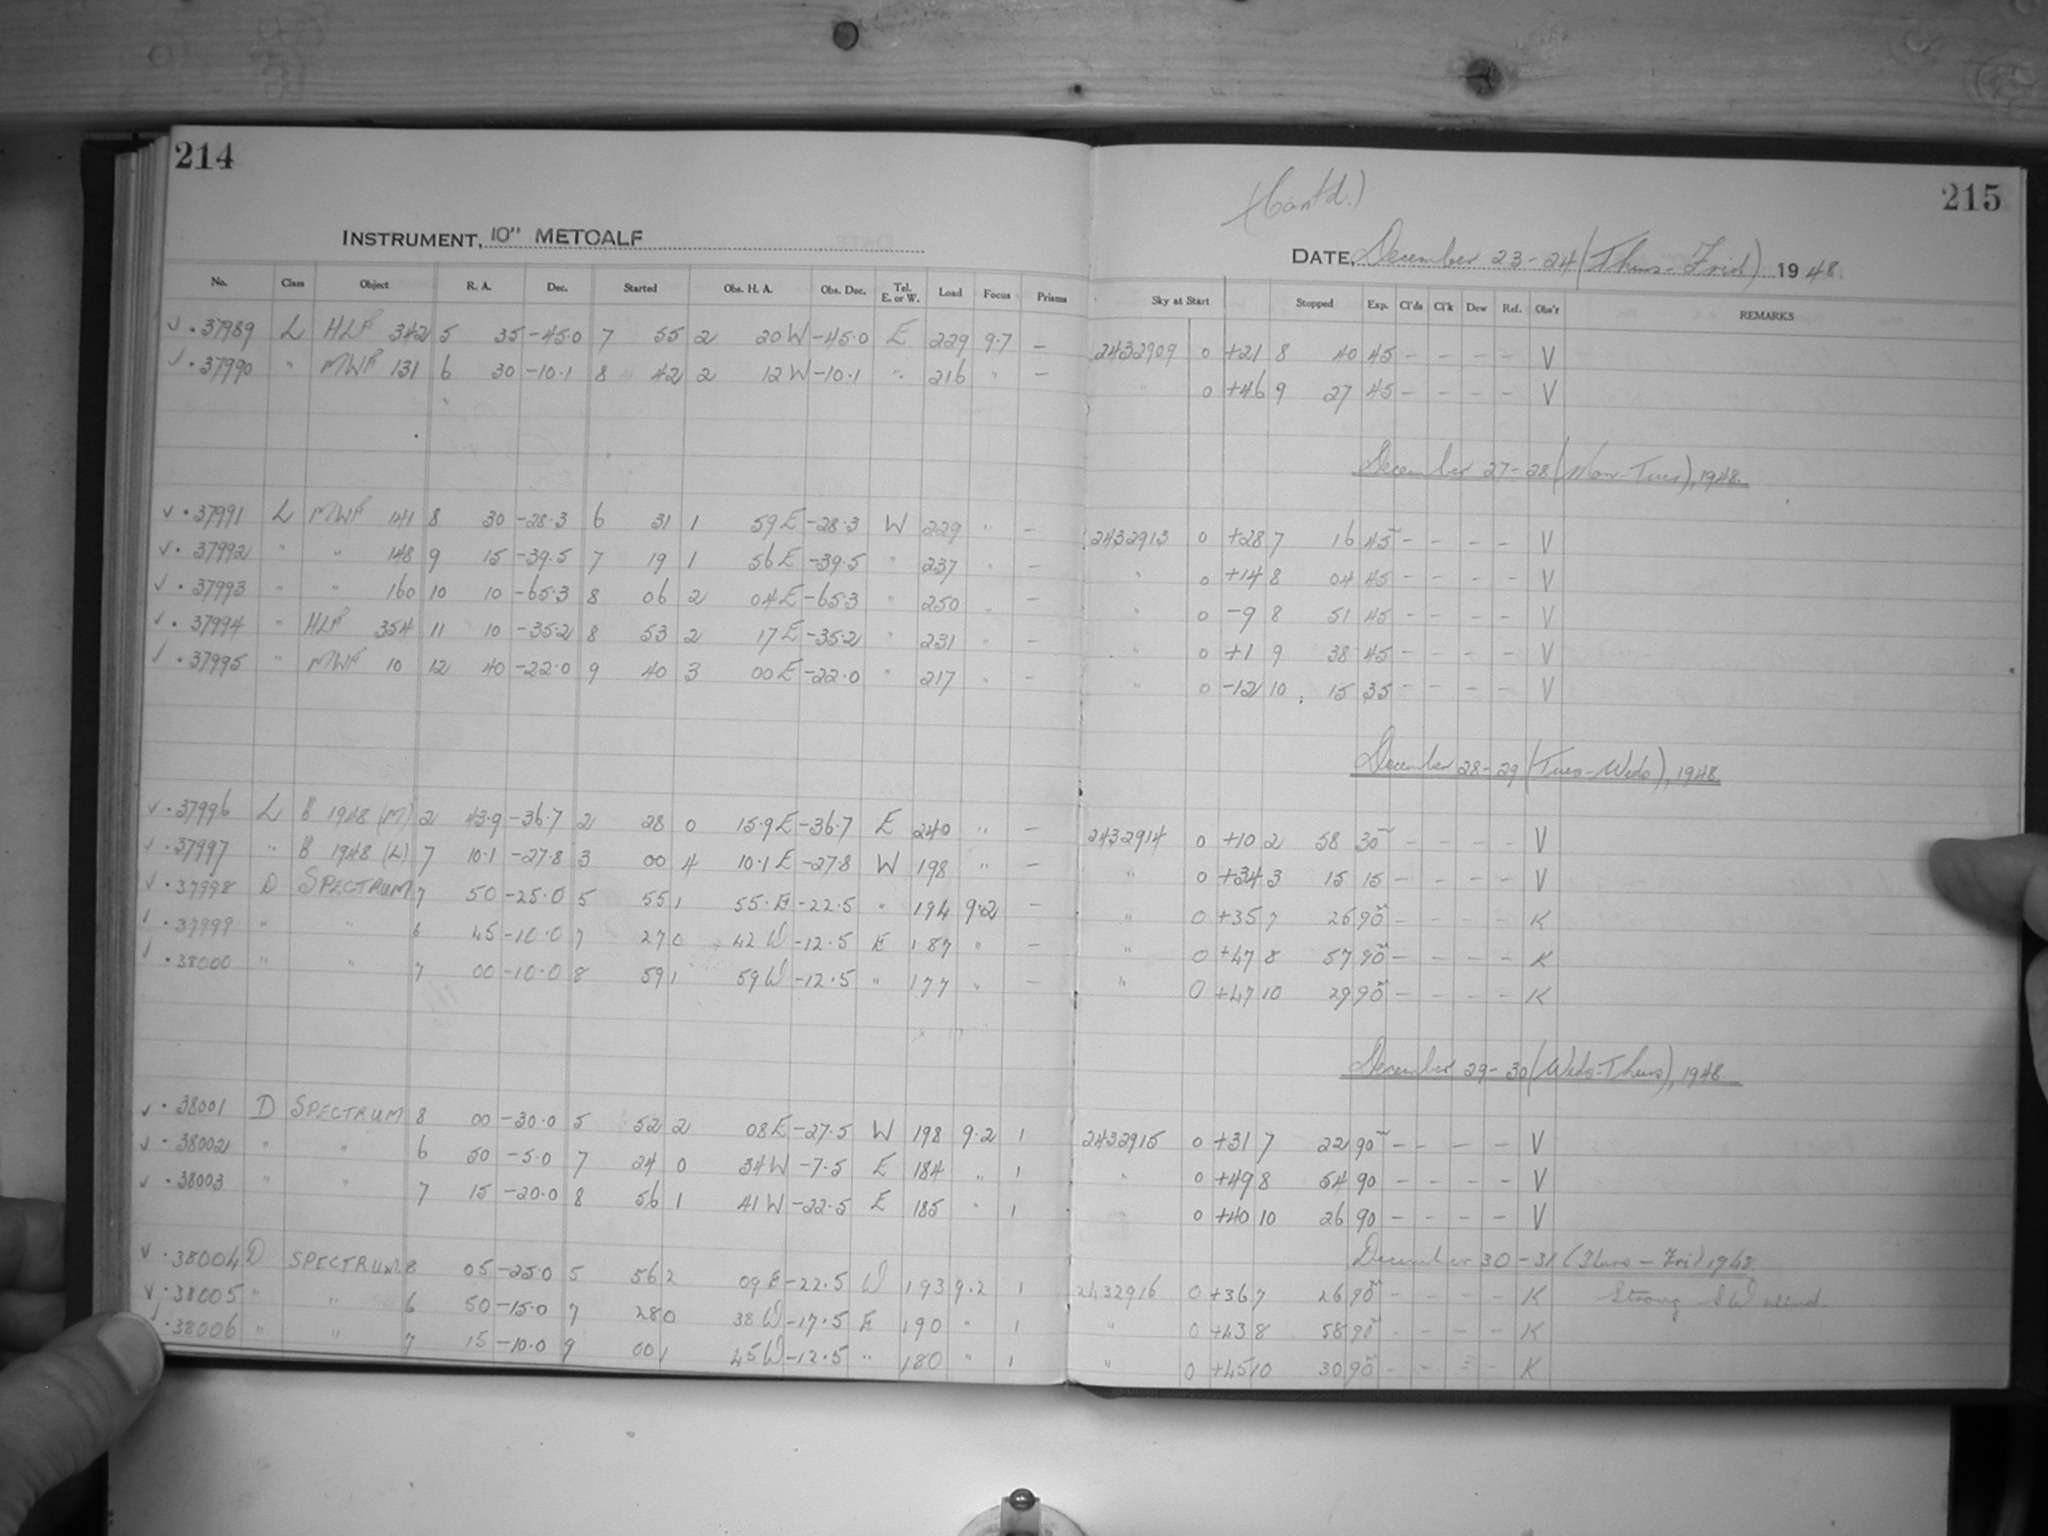 214
INSTRUMENT, 10" METCALF
No. Class Object R. A. Dec. Started Obs. H. A. Obs. Dec. Tel. E. or W. Load Focus Prisms
√ . 37989 L HLF 342 5 35 -45.0 7 55 2 20 W -45.0 E 229 9.7 -
√ . 37990 " MWF 131 6 30 -10.1 8 42 2 12 W -10.1 " 216 " -
√ . 37991 L MWF 141 8 30 -28.3 6 31 1 59 E -28.3 W 229 " -
√ . 37992 " " 148 9 15 -39.5 7 19 1 56 E -39.5 " 237 " -
√ . 37993 " " 160 10 10 -65.3 8 06 2 04 E -65.3 " 250 " -
√ . 37994 " HLF 354 11 10 -35.2 8 53 2 17 E -35.2 " 231 " -
√ . 37995 " MWF 10 12 40 -22.0 9 40 3 00 E -22.0 " 217 " -
√ . 37996 L 1948 (M) 2 43.9 -36.7 2 28 0 15.9 E -36.7 E 240 " -
√ . 37997 " 1948 (L) 7 10.1 -27.8 3 00 4 10.1 E -27.8 W 198 " -
√ . 37998 D SPECTRUM 7 50 -25.0 5 55 1 55 E -22.5 " 194 9.2 -
√ . 37999 " " 6 45 -10.0 7 27 0 42 W -12.5 E 187 " -
√ . 38000 " " 7 00 -10.0 8 59 1 59 W -12.5 " 177 " -
√ . 38001 D SPECTRUM 8 00 -30.0 5 52 2 08 E -27.5 W 198 9.2 1
√ . 38002 " " 6 50 -5.0 7 24 0 34 W -7.5 E 184 " 1
√ . 38003 " " 7 15 -20.0 8 56 1 41 W -22.5 E 185 " 1
√ . 38004 D SPECTRUM 8 05 -25.0 5 56 2 09 E -22.5 W 193 9.2 1
√ . 38005 " " 6 50 -15.0 7 28 0 38 W -17.5 E 190 " 1
√ . 38006 " " 7 15 -10.0 9 00 1 45 W -12.5 " 180 " 1
215
(Contd.)
DATE, December 23-24 (Thurs-Frid) 1948.
Sky at Start Stopped Exp. Cl'ds Cl'k Dew Ref. Obs'r REMARKS
2432909 0 +21 8 40 45 - - - - V
" 0 +46 9 27 45 - - - - V
December 27-28 (Mon-Tues), 1948.
2432913 0 +28 7 16 45 - - - - V
" 0 +14 8 04 45 - - - - V
" 0 -9 8 51 45 - - - - V
" 0 +1 9 38 45 - - - - V
" 0 -12 10 15 35 - - - - V
December 28-29 (Tues-Weds), 1948.
2432914 0 +10 2 58 30 - - - - V
" 0 +34 3 15 15 - - - - V
" 0 +35 7 26 90 - - - - K
" 0 +47 8 57 90 - - - - K
" 0 +47 10 29 90 - - - - K
December 29-30 (Weds-Thurs), 1948.
2432915 0 +31 7 22 90 - - - - V
" 0 +49 8 54 90 - - - - V
0 +40 10 26 90 - - - - V
December 30-31 (Thurs-Fri) 1948.
2432916 0 +36 7 26 90 - - - - K Strong SW wind.
" 0 +43 8 58 90 - - - - K
" 0 +45 10 30 90 - - - - K